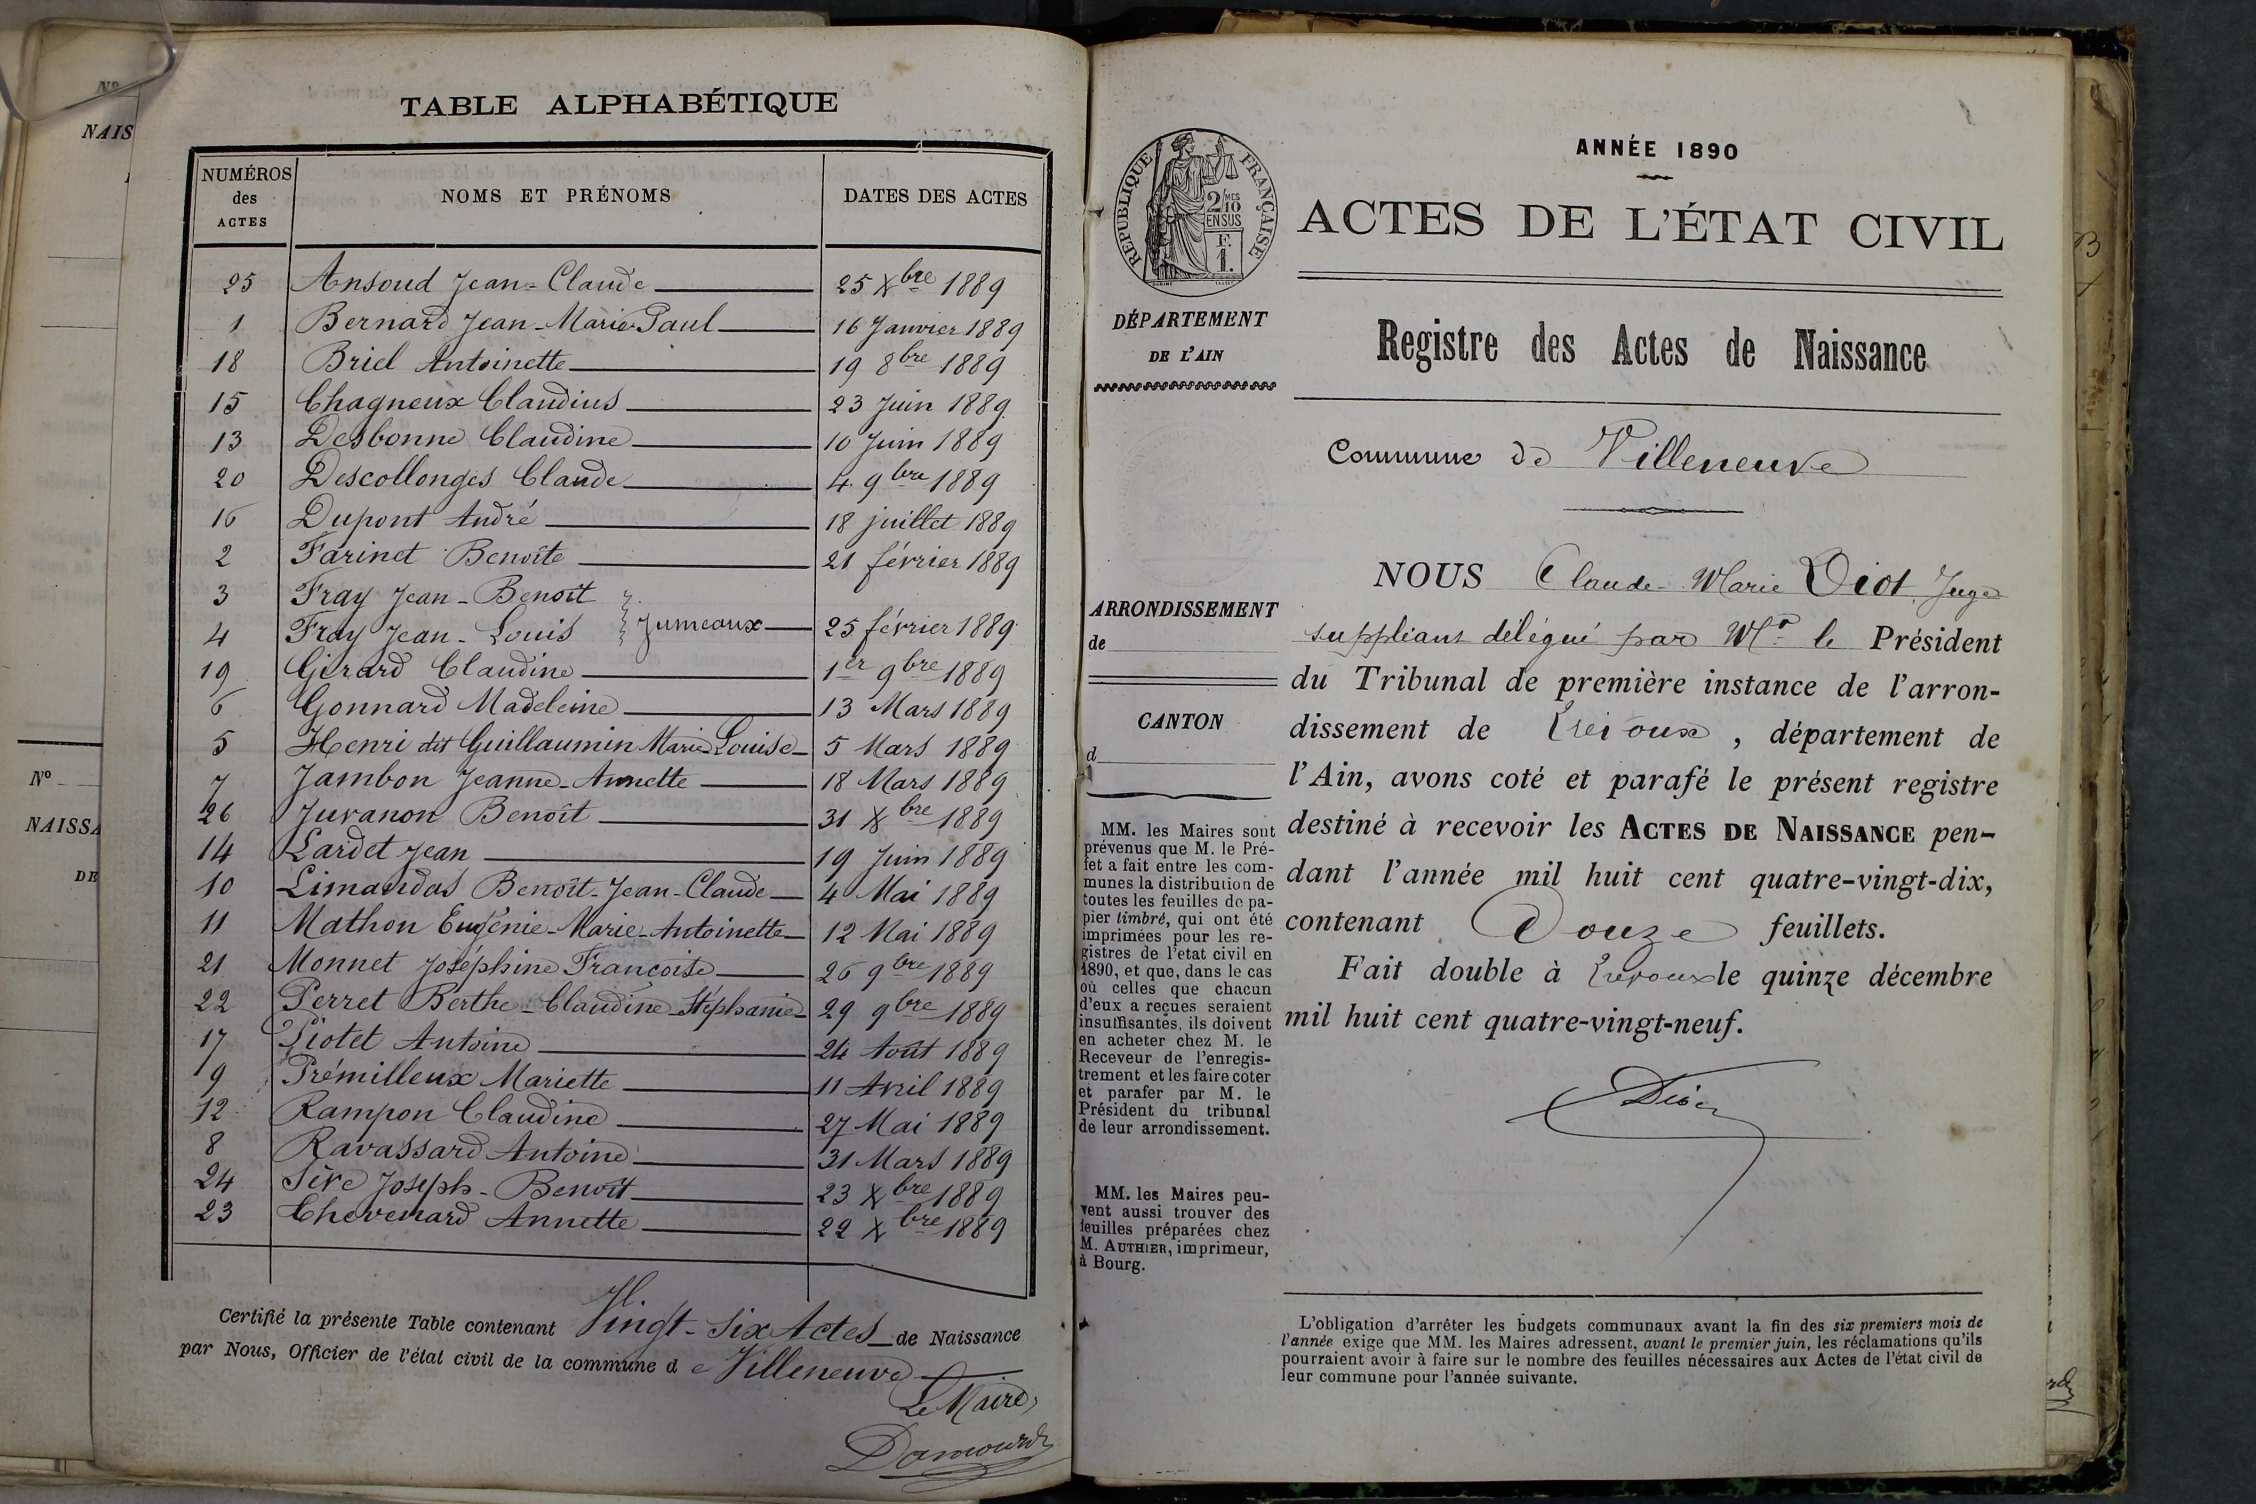 Nº
NAIS
Nº
NAISSA
DE
TABLE ALPHABÉTIQUE
NUMÉROS des ACTES NOMS ET PRÉNOMS DATES DES ACTES
25 Ansoud Jean-Claude 25 Xbre 1889
1 Bernard Jean-Marie Paul 16 Janvier 1889
18 Briel Antoinette 19 8bre 1889
15 Chagneux Claudius 23 Juin 1889
13 Desbonne Claudine 10 Juin 1889
20 Descollonges Claude 4 9bre 1889
16 Dupont André 18 juillet 1889
2 Farinet Benoîte 21 février 1889
3 Fray Jean-Benoît
4 Fray Jean-Louis Jumeaux 25 février 1889
19 Girard Claudine 1er 9bre 1889
6 Gonnard Madeleine 13 Mars 1889
5 Henri dit Guillaumin Marie Louise 5 Mars 1889
7 Jambon Jeanne-Annette 18 Mars 1889
26 Juvanon Benoît 31 Xbre 1889
14 Lardet Jean 19 Juin 1889
10 Limandas Benoît-Jean-Claude 4 Mai 1889
11 Mathon Eugénie-Marie-Antoinette 12 Mai 1889
21 Monnet Joséphine Françoise 26 9bre 1889
22 Perret Berthe-Claudine-Stéphanie 29 9bre 1889
17 Piotet Antoine 24 Août 1889
9 Prémilleux Mariette 11 Avril 1889
12 Rampon Claudine 27 Mai 1889
8 Ravassard Antoine 31 Mars 1889
24 Sève Joseph-Benoît 23 Xbre 1889
23 Chevenard Annette 22 Xbre 1889
Certifié la présente Table contenant Vingt-Six Actes de Naissance
par Nous, Officier de l'état civil de la commune de Villeneuve
Le Maire,
RÉPUBLIQUE FRANÇAISE
2/10 MES
EN SUS
F.
1.
DÉPARTEMENT
DE L'AIN
ARRONDISSEMENT
de
CANTON
d
MM. les Maires sont
prévenus que M. le Pré-
fet a fait entre les com-
munes la distribution de
toutes les feuilles de pa-
pier timbré, qui ont été
imprimées pour les re-
gistres de l'état civil en
1890, et que, dans le cas
où celles que chacun
d'eux a reçues seraient
insuffisantes, ils doivent
en acheter chez M. le
Receveur de l'enregis-
trement et les faire coter
et parafer par M. le
Président du tribunal
de leur arrondissement.
MM. les Maires peu-
vent aussi trouver des
feuilles préparées chez
M. AUTHIER, imprimeur,
à Bourg.
ANNÉE 1890
ACTES DE L'ÉTAT CIVIL
Registre des Actes de Naissance
Commune de Villeneuve
NOUS Claude-Marie Diot, Juge
suppléant délégué par Mr le Président
du Tribunal de première instance de l'arron-
dissement de Trévoux, département de
l'Ain, avons coté et parafé le présent registre
destiné à recevoir les ACTES DE NAISSANCE pen-
dant l'année mil huit cent quatre-vingt-dix,
contenant Douze feuillets.
Fait double à Trévoux le quinze décembre
mil huit cent quatre-vingt-neuf.
Diot
L'obligation d'arrêter les budgets communaux avant la fin des six premiers mois de
l'année exige que MM. les Maires adressent, avant le premier juin, les réclamations qu'ils
pourraient avoir à faire sur le nombre des feuilles nécessaires aux Actes de l'état civil de
leur commune pour l'année suivante.